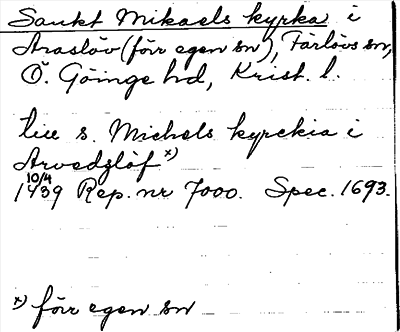 Sankt Mikaels kyrka i
Araslöv (förr egen sn), Färlövs sn,
Ö. Göinge hd, Krist. l.
till s. Michels kyrekia i
Arvedzløf x)
10/4
1439 Rep. nr 7000. Spec. 1693.
x) förr egen sn